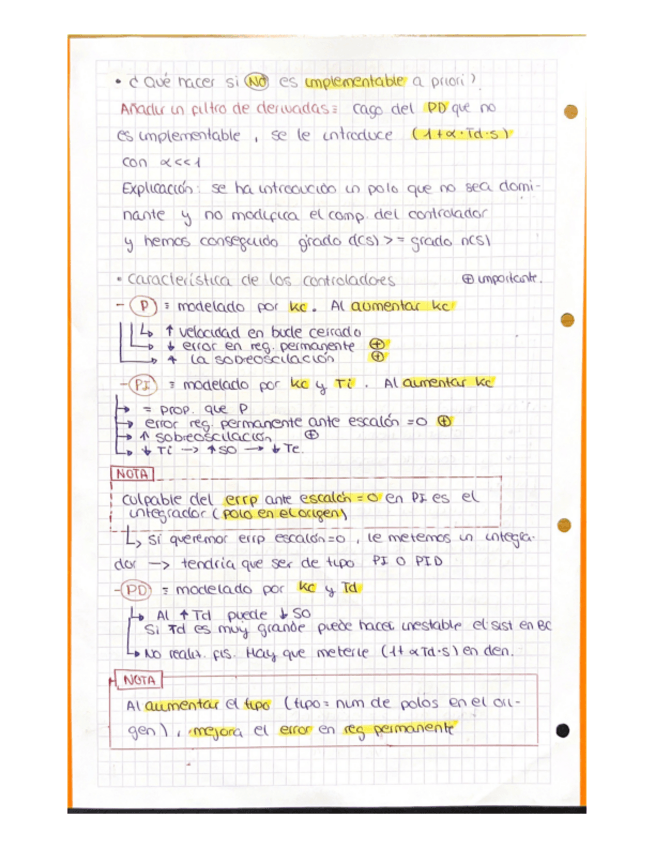 • ¿Qué hacer si NO es implementable a priori?
Añadir un filtro de derivadas = caso del PD que no
es implementable, se le introduce (1+α·Td·s)
con α<<1
Explicación: se ha introducido un polo que no sea domi-
nante y no modifica el comp. del controlador
y hemos conseguido grado d(s) >= grado n(s)
• Característica de los controladores ⊕ importante.
- P = modelado por kc. Al aumentar kc
↳ ↑ velocidad en bucle cerrado
↳ ↓ error en reg. permanente ⊕
↳ ↑ la sobreoscilación ⊕
- PI = modelado por kc y Ti. Al aumentar kc
→ = prop. que P
→ error reg. permanente ante escalón =0 ⊕
→ ↑ sobreoscilación ⊕
↳ ↓ Ti -> ↑SO -> ↓Te
NOTA
Culpable del errp ante escalón = 0 en PI es el
integrador (polo en el origen)
↳ si queremor errp escalón=0, le metemos un integra-
dor -> tendría que ser de tipo PI O PID
- PD = modelado por kc y Td
↳ Al ↑Td puede ↓SO
Si Td es muy grande puede hacer inestable el sist en BC
↳ No realiz. fís. Hay que meterle (1+αTd·s) en den.
NOTA
Al aumentar el tipo (tipo = num de polos en el ori-
gen), mejora el error en reg permanente